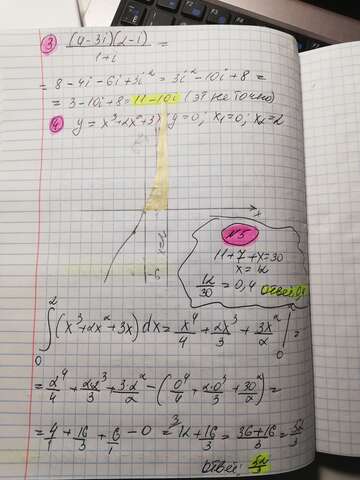 3) (4-3i)(2-i) / 1+i =
= 8-4i-6i+3i² = 3i²-10i+8 =
= 3-10i+8 = 11-10i (эт не точно)
4) y = x³+2x²+3x; y=0; x₁=0; x₂=2
x
x=2
N5
11+7+x=30
x=12
12/30 = 0,4 Ответ: 0,4
∫₀² (x³+2x²+3x)dx = x⁴/4 + 2x³/3 + 3x²/2 |₀² =
= 2⁴/4 + 2·2³/3 + 3·2²/2 - (0⁴/4 + 2·0³/3 + 3·0²/2) =
= 4/1 + 16/3 + 6/1 - 0 = 12 + 16/3 = 36+16/3 = 52/3
Ответ: 52/3